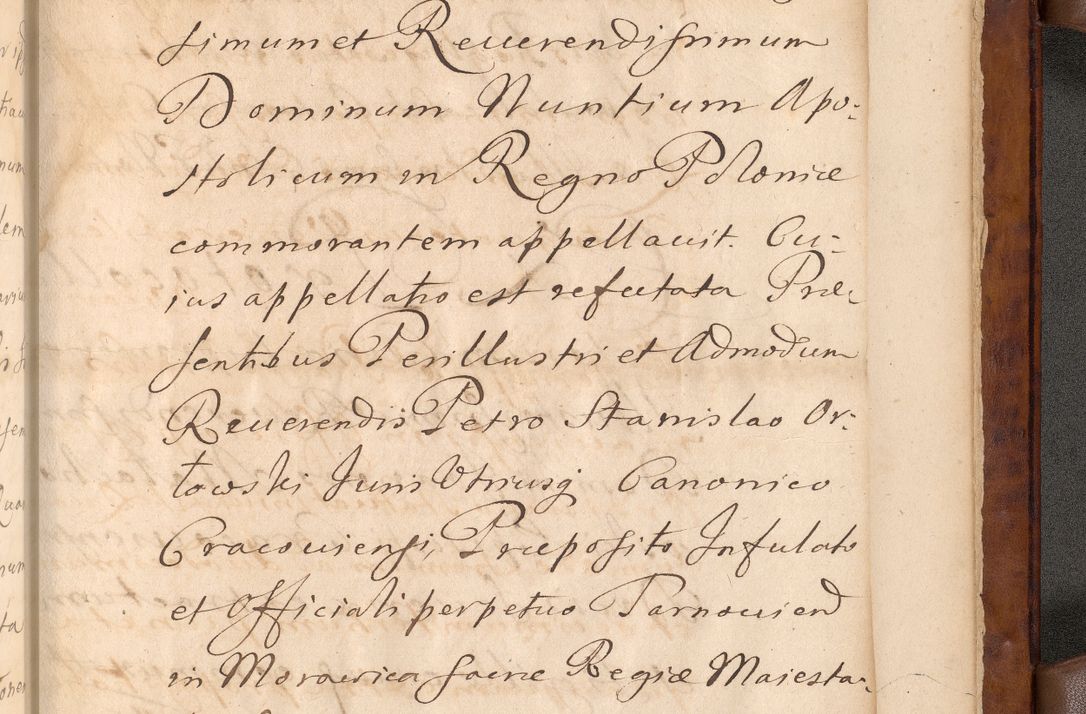 simum et Reuerendissimum
Dominum Nuntium Apo-
stolicum in Regno Poloniæ
commorantem appellauit. Cu-
ius appellatio est refutata Præ-
sentibus Perillustri et Admodum
Reuerendis Petro Stanislao Or-
łowski Juris Utriusq Canonico
Cracouiensi, Præposito Infulato
et Officiali perpetuo Tarnouien
in Morawica Sacræ Regiæ Maiesta-